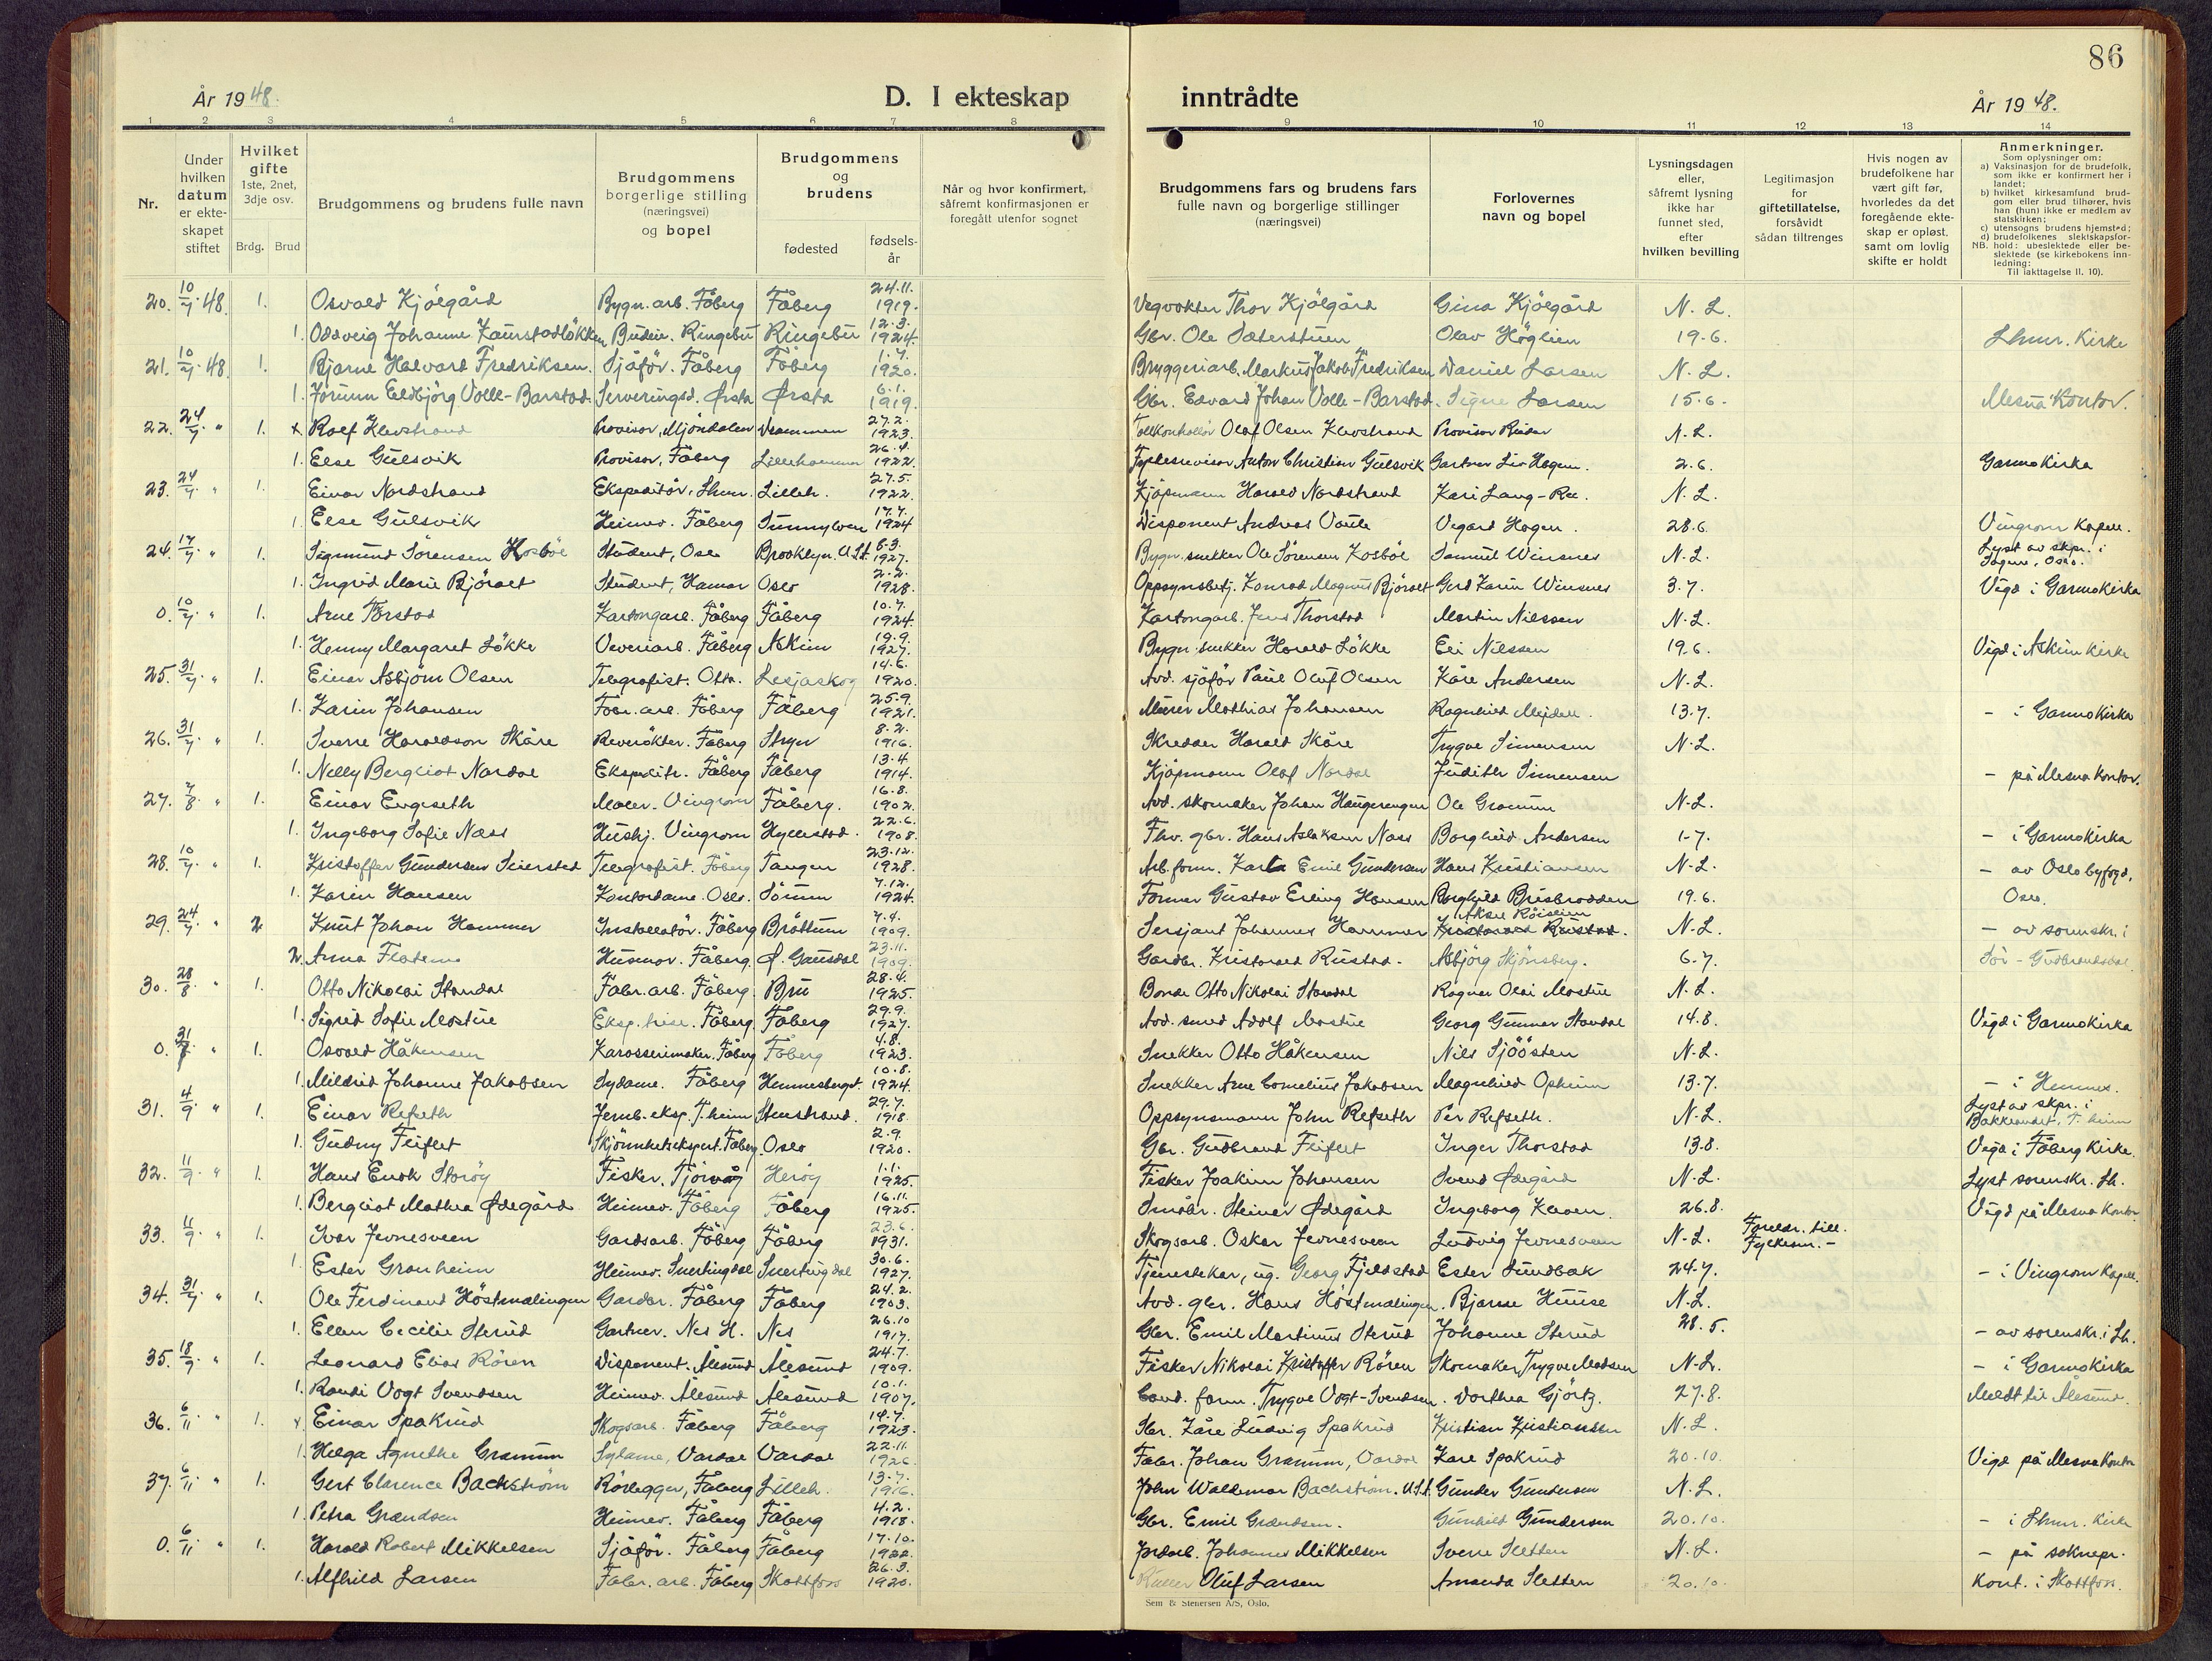 86
År 1948.
D. I ekteskap inntrådte
År 19 48.
1 2 3 4 5 6 7 8 9 10 11 12 13 14
Nr.
Under hvilken datum er ekteskapet stiftet
Hvilket gifte 1ste, 2net, 3dje osv.
Brdg. Brud
Brudgommens og brudens fulle navn
Brudgommens borgerlige stilling (næringsvei) og bopel
Brudgommens og brudens
fødested
fødsels-år
Når og hvor konfirmert, såfremt konfirmasjonen er foregått utenfor sognet
Brudgommens fars og brudens fars fulle navn og borgerlige stillinger (næringsvei)
Forlovernes navn og bopel
Lysningsdagen eller, såfremt lysning ikke har funnet sted, efter hvilken bevilling
Legitimasjon for giftetillatelse, forsåvidt sådan tiltrenges
Hvis nogen av brudefolkene har vært gift før, hvorledes da det foregående ekteskap er opløst, samt om lovlig skifte er holdt
Anmerkninger.
Som oplysninger om:
a) Vaksinasjon for de brudefolk, som ikke er konfirmert her i landet;
b) hvilket kirkesamfund brudgom eller brud tilhører, hvis han (hun) ikke er medlem av statskirken;
c) utensogns brudens hjemsted;
d) brudefolkenes slektskapsforhold: ubeslektede eller beslektede (se kirkebokens innledning:
NB. Til iakttagelse II. 10).
20. 10/7 48. 1. Osvald Kjölgård Bygn.arb. Fåberg Fåberg 24.11. 1919. Vegvokter Thor Kjölgård Gina Kjölgård N.L.
1. Oddveig Johanne Kaunstadløkken Budeie. Ringebu Ringebu 12.3. 1924. Gbr. Ole Sæterstuen Olav Höglien 19.6. Lhmr. Kirke
21. 10/7 48. 1. Bjarne Halvard Fredriksen. Sjåför. Fåberg Fåberg 1.7. 1920. Bryggeriarb. Markus Jakob Fredriksen Daniel Larsen N.L.
1. Jorunn Eldbjörg Volle-Barstad. Serveringsd. Ørsta Ørsta 6.1. 1919. Gbr. Edvard Johan Volle-Barstad. Signe Larsen 15.6. Mesna Kontor.
22. 24/7 " 1. x Rolf Klevstrand Provisor, Mjöndalen Drammen 27.2. 1923. Tollkontrollör Olaf Olsen Klevstrand Provisor N.L.
1. Else Gulsvik Provisor, Fåberg Lillehammer 26.4. 1922. Fylkesrevisor Anton Christian Gulsvik Gartner Liv Hagen. 2.6. Garmokirka
23. 24/7 " 1. Einar Nordstrand Ekspeditör, Lhmr. Lilleh. 27.5. 1922. Kjöpmann Harald Nordstrand Kari Lang-Ree. N.L.
1. Else Gulsvik Heimev. Fåberg Sunnylven 17.7. 1924 Disponent Andreas Vegard Hagen. 28.6. Vingrom Kapell.
24. 17/7 " 1. Sigmund Sörensen Kosböl Student, Oslo Brooklyn. U.S.A. 6.3. 1927. Bygn.snekker Ole Sörensen Kosböl Samuel Winsnes N.L. Lyst av skpr. i Sogne, Oslo.
1. Ingrid Marie Björaet Student, Hamar Oslo 2.2. 1928. Oppsynsbetj. Konrad Magnus Björaet Gerd Karin Winsnes 3.7. Vigd i Garmokirka
0. 10/7 " 1. Arne Torstad Kartongarb. Fåberg Fåberg 10.7. 1924. Kartongarb. Jens Thorstad Martin Nilssen N.L.
1. Henny Margaret Løkke Veveriarb. Fåberg Askim 19.9. 1927. Bygn.snekker Harald Løkke Eli Nilssen 19.6. Vigd i Askim kirke
25. 31/7 " 1. Einar Asbjörn Olsen Telegrafist. Otta. Lesjaskog 14.6. 1920. Avd. sjåför Paul Oluf Olsen Kåre Andersen N.L.
1. Karin Johansen Fabr.arb. Fåberg Fåberg 25.9. 1921. Murer Mathias Johansen Ragnhild Mejdell. 13.7. - i Garmokirka
26. 31/7 " 1. Sverre Haraldson Skåre Reverökter. Fåberg Stryn 8.2. 1916. Skredder Harald Skåre Trygve Simensen N.L.
1. Nelly Bergliot Nordal Ekspeditr. Fåberg Fåberg 13.4 1914. Kjöpmann Olaf Nordal Judith Simensen - på Mesna kontor.
27. 7/8 " 1. Einar Engeseth Maler. Vingrom Fåberg. 16.8. 1902. Avd. skomaker Johan Haugerengen Ole Gramm N.L.
1. Ingeborg Sofie Næss Hushj. Vingrom Hyllestad. 22.6. 1908. Fhv. gbr. Hans Aslaksen Næss Borghild Andersen 1-7. - i Garmokirka
28. 10/7 " 1. Kristoffer Gundersen Seierstad Telegrafist. Fåberg Tangen 23.12. 1928. Arb.form. Karl Emil Gundersen Hans Kristiansen N.L. - av Oslo byfogd,
1. Karin Hansen Kontordame. Oslo. Sörum 7.12. 1924. Former Gustav Erling Hansen Borghild Brusbrodden 19.6. Oslo.
29. 24/7 " 2 Knut Johan Hammer Installatör. Fåberg Bröttum 7.4. 1909. Sersjant Johannes Hammer N.L. - av sorenskr. i
2. Anna Flatmo Husmor. Fåberg. Ø. Gausdal 23.11. 1909. Gardbr. Kristoard Rustad. Asbjörg Skjönsberg. 6.7. Sör-Gudbrandsdal.
30. 28/8 " 1. Otto Nikolai Standal Fabr.arb. Fåberg. Bru 28.4. 1925. Bonde Otto Nikolai Standal Ragnar Olai Mostue N.L.
1. Sigrid Sofie Mostue Eksp.trise. Fåberg. Fåberg 29.9. 1927. Avd. smed Adolf Mostue Georg Gunnar Standal 14.8. Vigd i Garmokirka
0. 31/7 " 1. Osvald Håkensen Karosserimaker. Fåberg Fåberg 4.8. 1923. Snekker Otto Håkensen Nils Sjöösten N.L.
1. Mildrid Johanne Jakobsen Sydame. Fåberg Hemnesberget. 10.8. 1924. Snekker Arne Cornelius Jakobsen Magnhild Opheim 13.7. - i Hemnes.
31. 4/9 " 1. Einar Refseth Jernb.eksp. T.heim Stenstrand. 29.7. 1918. Oppsynsmann John Refseth Per Refseth. N.L. Lyst av skpr. i Bakklandet, T.heim
1. Gudny Fliflet Skjönnhetsekspert. Fåberg. Oslo 2.9. 1920. Gbr. Gudbrand Fliflet Inger Thorstad 13.8. Vigd i Fåberg Kirke.
32. 11/9 " 1. Hans Enok Storöy Fisker. Tjörvåg Heröy 1.1. 1925. Fisker Joakim Johansen Svend Ødegård N.L. Lyst sorenskr. Lh.
1. Bergliot Mathea Ødegård Heimev. Fåberg Fåberg 16.11. 1925. Småbr. Steinar Ødegård Ingeborg Kleven. 26.8. Vigd på Mesna Kontor
33. 11/9 " 1. Ivar Jevnesveen Gardsarb. Fåberg Fåberg 23.6. 1931. Skogsarb. Oskar Jevnesveen Ludvig Jevnesveen N.L. Foreldr. till. Fylkesm.-
1. Ester Granheim Heimev. Snertingdal Snertingdal 30.6. 1927. Tjenestekar, ug. Georg Fjeldstad Ester Sundbak 24.7. - i Vingrom Kapell.
34. 31/7 " 1. Ole Ferdinand Höstmælingen Gardbr. Fåberg Fåberg 24.2. 1903. Avd. gbr. Hans Höstmælingen. Bjarne Huuse N.L.
1. Ellen Cecilie Sterud Gartner. Nes H. Nes 26.10 1917. Gbr. Emil Martinus Sterud Johanne Sterud 28.5. - av sorenskr. i Lh.
35. 18/9 " 1. Leonard Elias Rören Disponent. Ålesund Ålesund 24.7. 1909. Fisker Nikolai Kristoffer Rören Skomaker Trygve Madsen N.L. - i Garmokirka
1. Randi Vogt Svendsen Heimev. Ålesund Ålesund 10.1. 1907. Cand. farm. Trygve Vogt-Svendsen. Dorthea Gjörtz. 27.8. Meldt til Ålesund.
36. 6/11 " 1. x Einar Spakrud Skogsarb. Fåberg Fåberg 14.7. 1923. Gbr. Kåre Ludvig Spakrud Kristian Kristiansen N.L.
1. Helga Agnethe Gramm Sydame, Vardal Vardal 22.11. 1926. Fabr. Johan Gramm, Vardal Kåre Spakrud 20.10. Vigd på Mesna Kontor
37. 6/11 " 1. Gert Clarence Bachström Rörlegger, Fåberg Lilleh. 13.7. 1916. John Waldemar Bachström. U.S.A. Gunder Gundersen N.L.
1. Petra Grændsen Heimev. Fåberg Fåberg 4.2. 1918. Gbr. Emil Grændsen. Gunhild Gundersen 20.10. - i Lhmr. Kirke
0. 6/11 " 1. Harald Robert Mikkelsen Sjåför. Fåberg Fåberg 17.10. 1922. Jordarb. Johannes Mikkelsen Sverre Sletten N.L. - på soknepr.
1. Alfhild Larsen Fabr.arb. Fåberg Skottfoss 26.3. 1920. Oluf Larsen Amanda Sletten 20.10. Kont. i Skottfoss.
Sem & Stenersen A/S, Oslo.